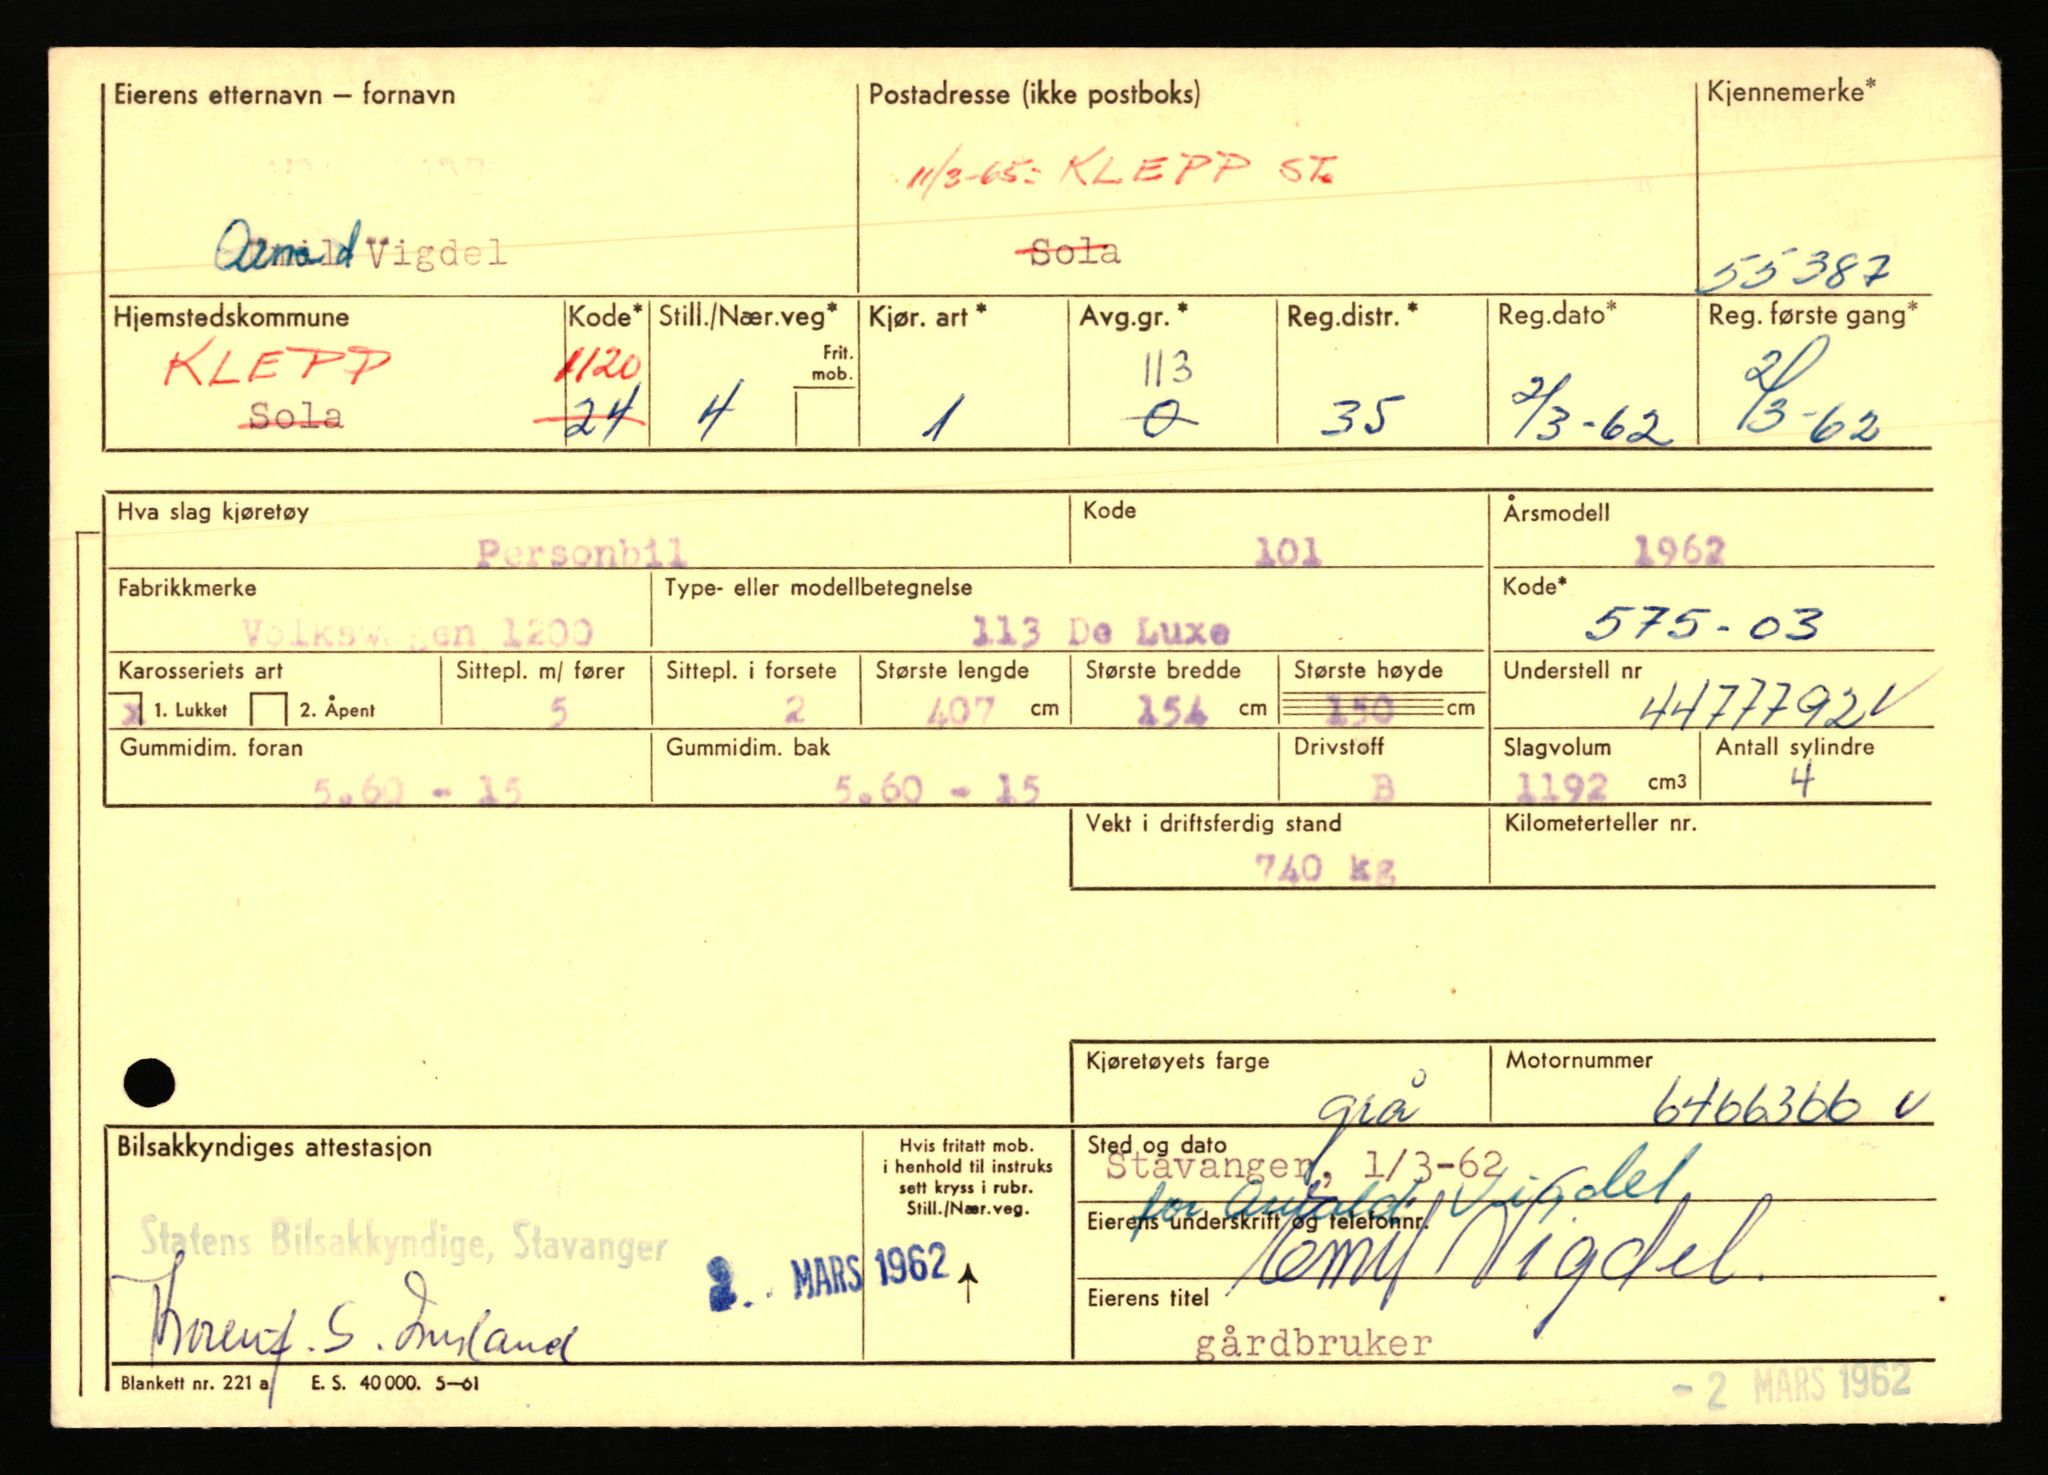 Eierens etternavn — fornavn
Postadresse (ikke postboks)
Kjennemerke*
11/3-65: KLEPP ST.
Arnold Vigdel
Sola
55387
Hjemstedskommune
Kode*
Still./Nær.veg*
Kjør. art*
Avg.gr.*
Reg.distr.*
Reg.dato*
Reg. første gang*
KLEPP
1120
Frit. mob.
113
Sola
24
4
1
0
35
2/3-62
2/3-62
Hva slag kjøretøy
Kode
Årsmodell
Personbil
101
1962
Fabrikkmerke
Type- eller modellbetegnelse
Kode*
Volkswagen 1200
113 De Luxe
575-03
Karosseriets art
Sittepl. m/ fører
Sittepl. i forsete
Største lengde
Største bredde
Største høyde
Understell nr
x 1. Lukket
2. Åpent
5
2
407 cm
154 cm
150 cm
4477792 V
Gummidim. foran
Gummidim. bak
Drivstoff
Slagvolum
Antall sylindre
5.60 - 15
5.60 - 15
B
1192 cm3
4
Vekt i driftsferdig stand
Kilometerteller nr.
740 kg
Kjøretøyets farge
Motornummer
grå
6466366 V
Bilsakkyndiges attestasjon
Hvis fritatt mob.
i henhold til instruks
sett kryss i rubr.
Still./Nær.veg.
Sted og dato
Stavanger, 1/3-62
for Arnold Vigdel
Eierens underskrift og telefonnr.
Vigdel.
Statens Bilsakkyndige, Stavanger
2. MARS 1962
Eierens titel
gårdbruker
Blankett nr. 221 a
E. S. 40000. 5—61
- 2 MARS 1962